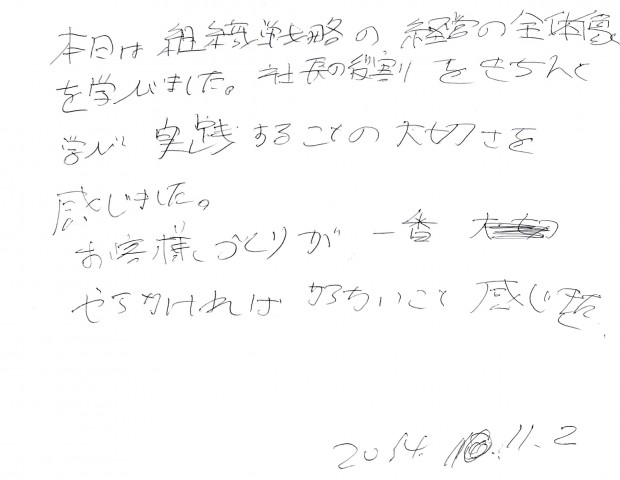 本日は組織戦略の経営の全体像
を学びました。社長の役割をきちんと
学び実践することの大切さを
感じました。
お客様づくりが一番
やらなければならないこと感じた
2014. 11.2